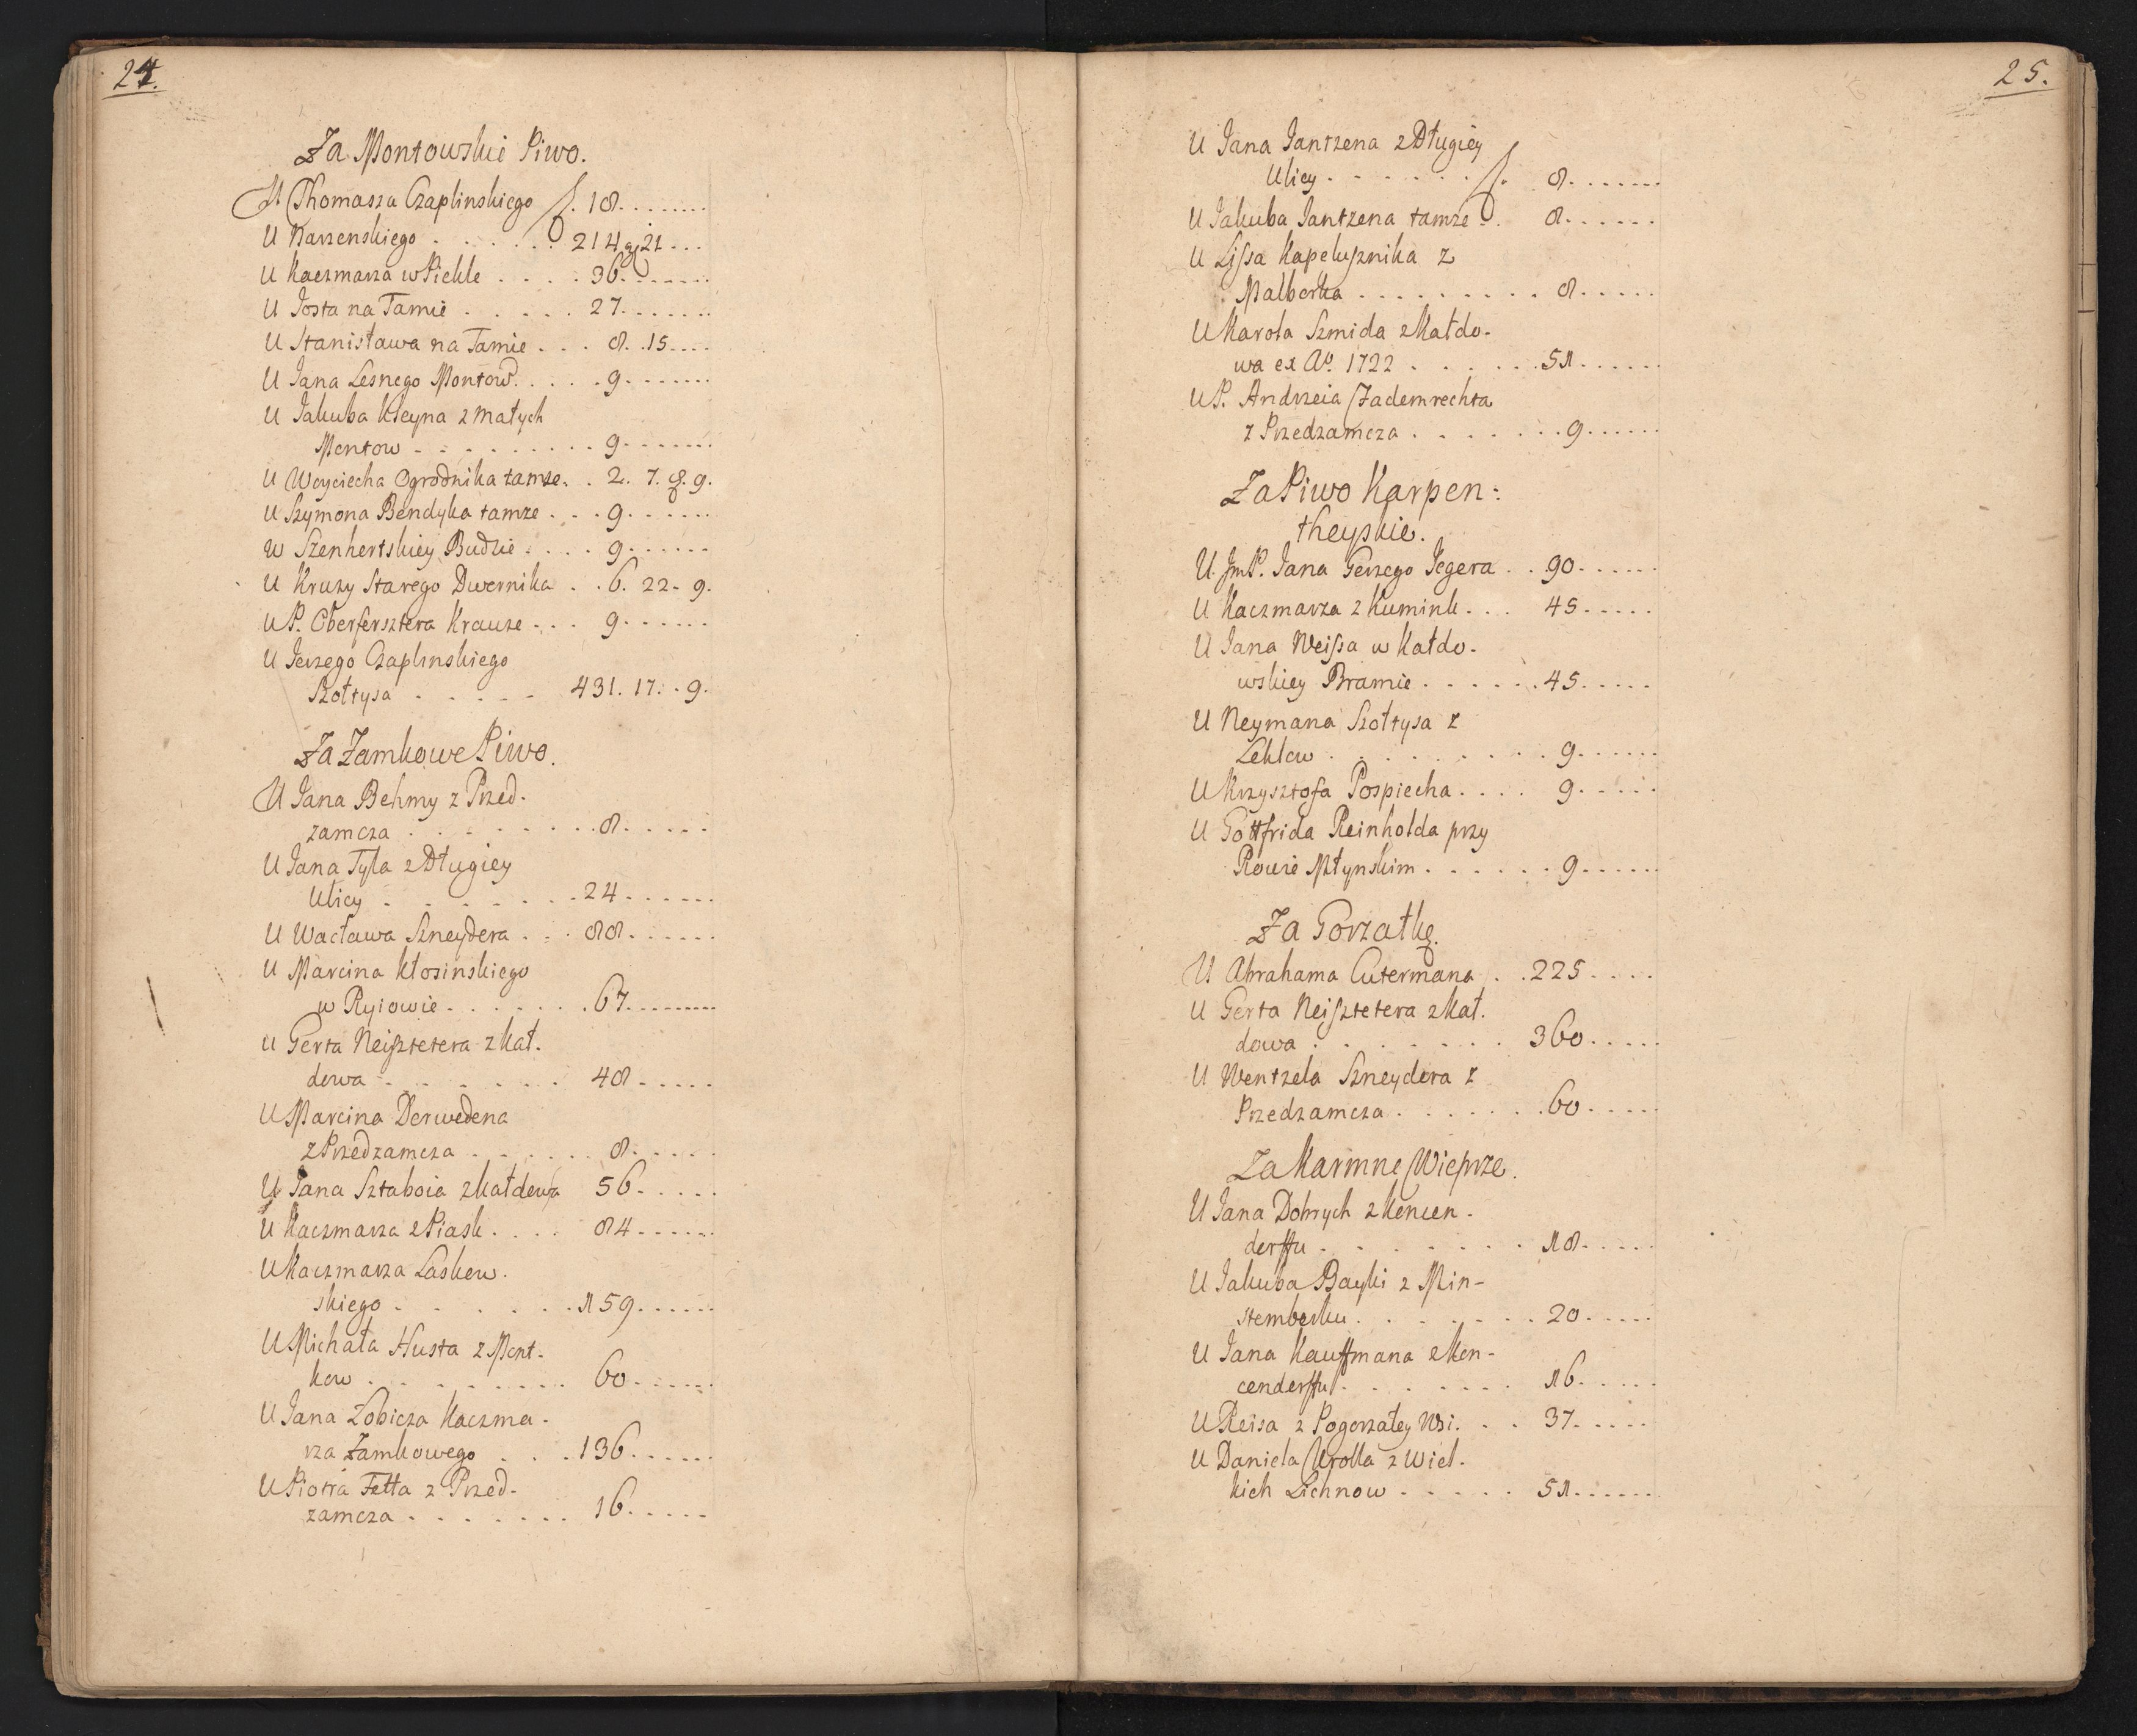 24.
Za Montowskie Piwo.
U Thomasza Czaplinskiego f. 18........
U Karzenskiego . . . . . . 214 g. 21...
U Kaczmarza w Piekle . . . . 36.......
U Josta na Tamie . . . . . 27.......
U Stanisława na Tamie . . . 8. .15....
U Jana Lesnego Montow. . . . . 9.......
U Jakuba Kleyna z małych
Montow . . . . . . . . . 9.......
U Woyciecha Ogrodnika tamze. . 2. 7. ꝗ. 9.
U Szymona Bendyka tamze . . . 9......
w Szenhertskiey Budzie . . . . 9......
U Kruzy Starego Dwornika . . 6. 22. 9.
U P. Oberfersztera Krauze . . . 9......
U Jerzego Czaplinskiego
Szołtysa . . . . . 431. 17. . 9.
Za Zamkowe Piwo.
U Jana Behmy z Przed-
zamcza . . . . . . . . 8.....
U Jana Tyla z Długiey
Ulicy . . . . . . . 24......
U Wacława Szneydera . . . 88......
U Marcina Kłosinskiego
w Ryiowie . . . . . . . 67........
U Gerta Neisztetera z Kał-
dowa . . . . . . 48.....
U Marcina Derwedena
z Przedzamcza . . . . . . 8.....
U Jana Sztaboia z Kałdowa 56.....
U Kaczmarza z Piask . . . . 84......
U Kaczmarza Laskow-
skiego . . . . . . . 159......
U Michała Husta z Mont-
kow . . . . . . . . 60......
U Jana Zobicza Kaczma-
rza Zamkowego . . . 136......
U Piotra Fetta z Przed-
zamcza . . . . . . . 16.....
25.
U Jana Jantzena z Długiey
Ulicy . . . . . . f. 8.......
U Jakuba Jantzena tamze . . 8......
U Lissa Kapelusznika z
Malborka . . . . . . . . . 8.....
U Karola Szmida z Kałdo-
wa ex Aº. 1722 . . . . . . 51......
U P. Andrzeia Zademrechta
z Przedzamcza . . . . . . . 9......
Za Piwo Karpen:
theyskie.
U Jm P. Jana Gerzego Jegera . . 90......
U Kaczmarza z Kumink . . . 45.....
U Jana Weissa w Kałdo-
wskiey Bramie . . . . . . 45.....
U Neymana Szołtysa z
Leklow . . . . . . . . . 9......
U Krzysztofa Pospiecha . . . . 9.....
U Gottfrida Reinholda przy
Rowie Młynskim . . . . . . 9......
Za Gorzałkę.
U Abrahama Cutermana . . 225....
U Gerta Neisztetera z Kał-
dowa . . . . . . . 360.....
U Wentzela Szneydera z
Przedzamcza . . . . . . . 60.....
Za Karmne Wieprze.
U Jana Dobrych z Koncen-
dorffu . . . . . . . 18.....
U Jakuba Bayki z Min-
stemberku . . . . . . . 20.....
U Jana Kauffmana z Kon-
cendorffu . . . . . . . 16.....
U Reisa z Pogorzałey Wsi . . . 37.....
U Daniela Urolla z Wiel-
kich Lichnow . . . . . 51......